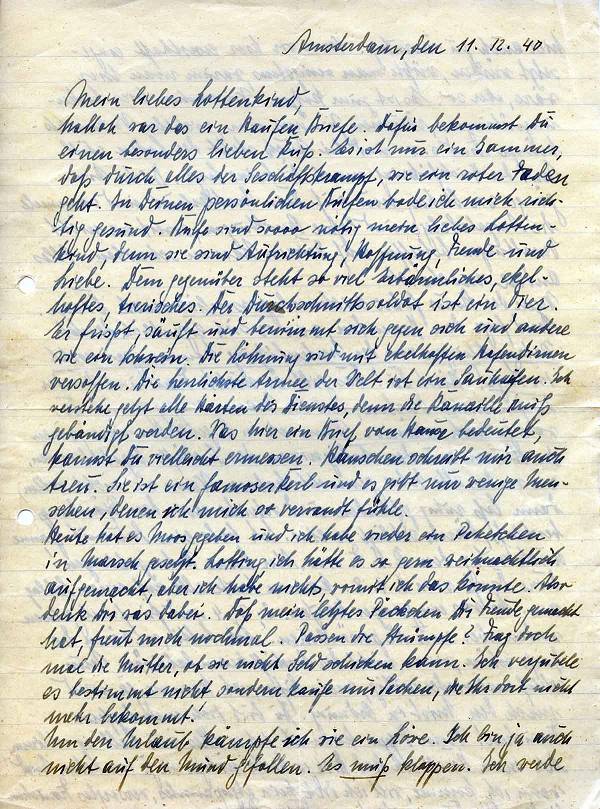 Amsterdam, den 11. 12. 40
Mein liebes Lottenkind,
Halloh war das ein Haufen Briefe. Dafür bekommst Du
einen besonders lieben Kuß. Es ist nur ein Jammer,
daß durch alles der Geschäftskrampf, wie ein roter Faden
geht. In Deinen persönlichen Briefen bade ich mich rich-
tig gesund. Briefe sind soooo nötig mein liebes Lotten-
kind, denn sie sind Aufrichtung, Hoffnung, Freude und
Liebe. Dem gegenüber steht so viel Erbärmliches, ekel-
haftes, tierisches. Der Durchschnittssoldat ist ein Tier.
Er frißt, säuft und benimmt sich gegen sich und andere
wie ein Schwein. Die Löhnung wird mit ekelhaften Hafendirnen
versoffen. Die herrlichste Armee der Welt ist ein Sauhaufen. Ich
verstehe jetzt alle Härten des Dienstes, denn die Kanaille muß
gebändigt werden. Was hier ein Brief von Hause bedeutet,
kannst Du vielleicht ermessen. Hänschen schreibt mir auch
treu. Sie ist ein famoser Kerl und es gibt nur wenige Men-
schen, denen ich mich so verwandt fühle.
Heute hat es Moos gegeben und ich habe wieder ein Paketchen
in Marsch gesetzt. Lotting ich hätte es so gern weihnachtlich
aufgemacht, aber ich habe nichts, womit ich das könnte. Also
denk Dir was dabei. Daß mein letztes Päckchen Dir Freude gemacht
hat, freut mich nochmal. Passen die Strümpfe? Frag doch
mal die Mutter, ob sie nicht Geld schicken kann. Ich verjubele
es bestimmt nicht sondern kaufe nur Sachen, die Ihr dort nicht
mehr bekommt!
Um den Urlaub kämpfe ich wie ein Löwe. Ich bin ja auch
nicht auf den Mund gefallen. Es muß klappen. Ich werde